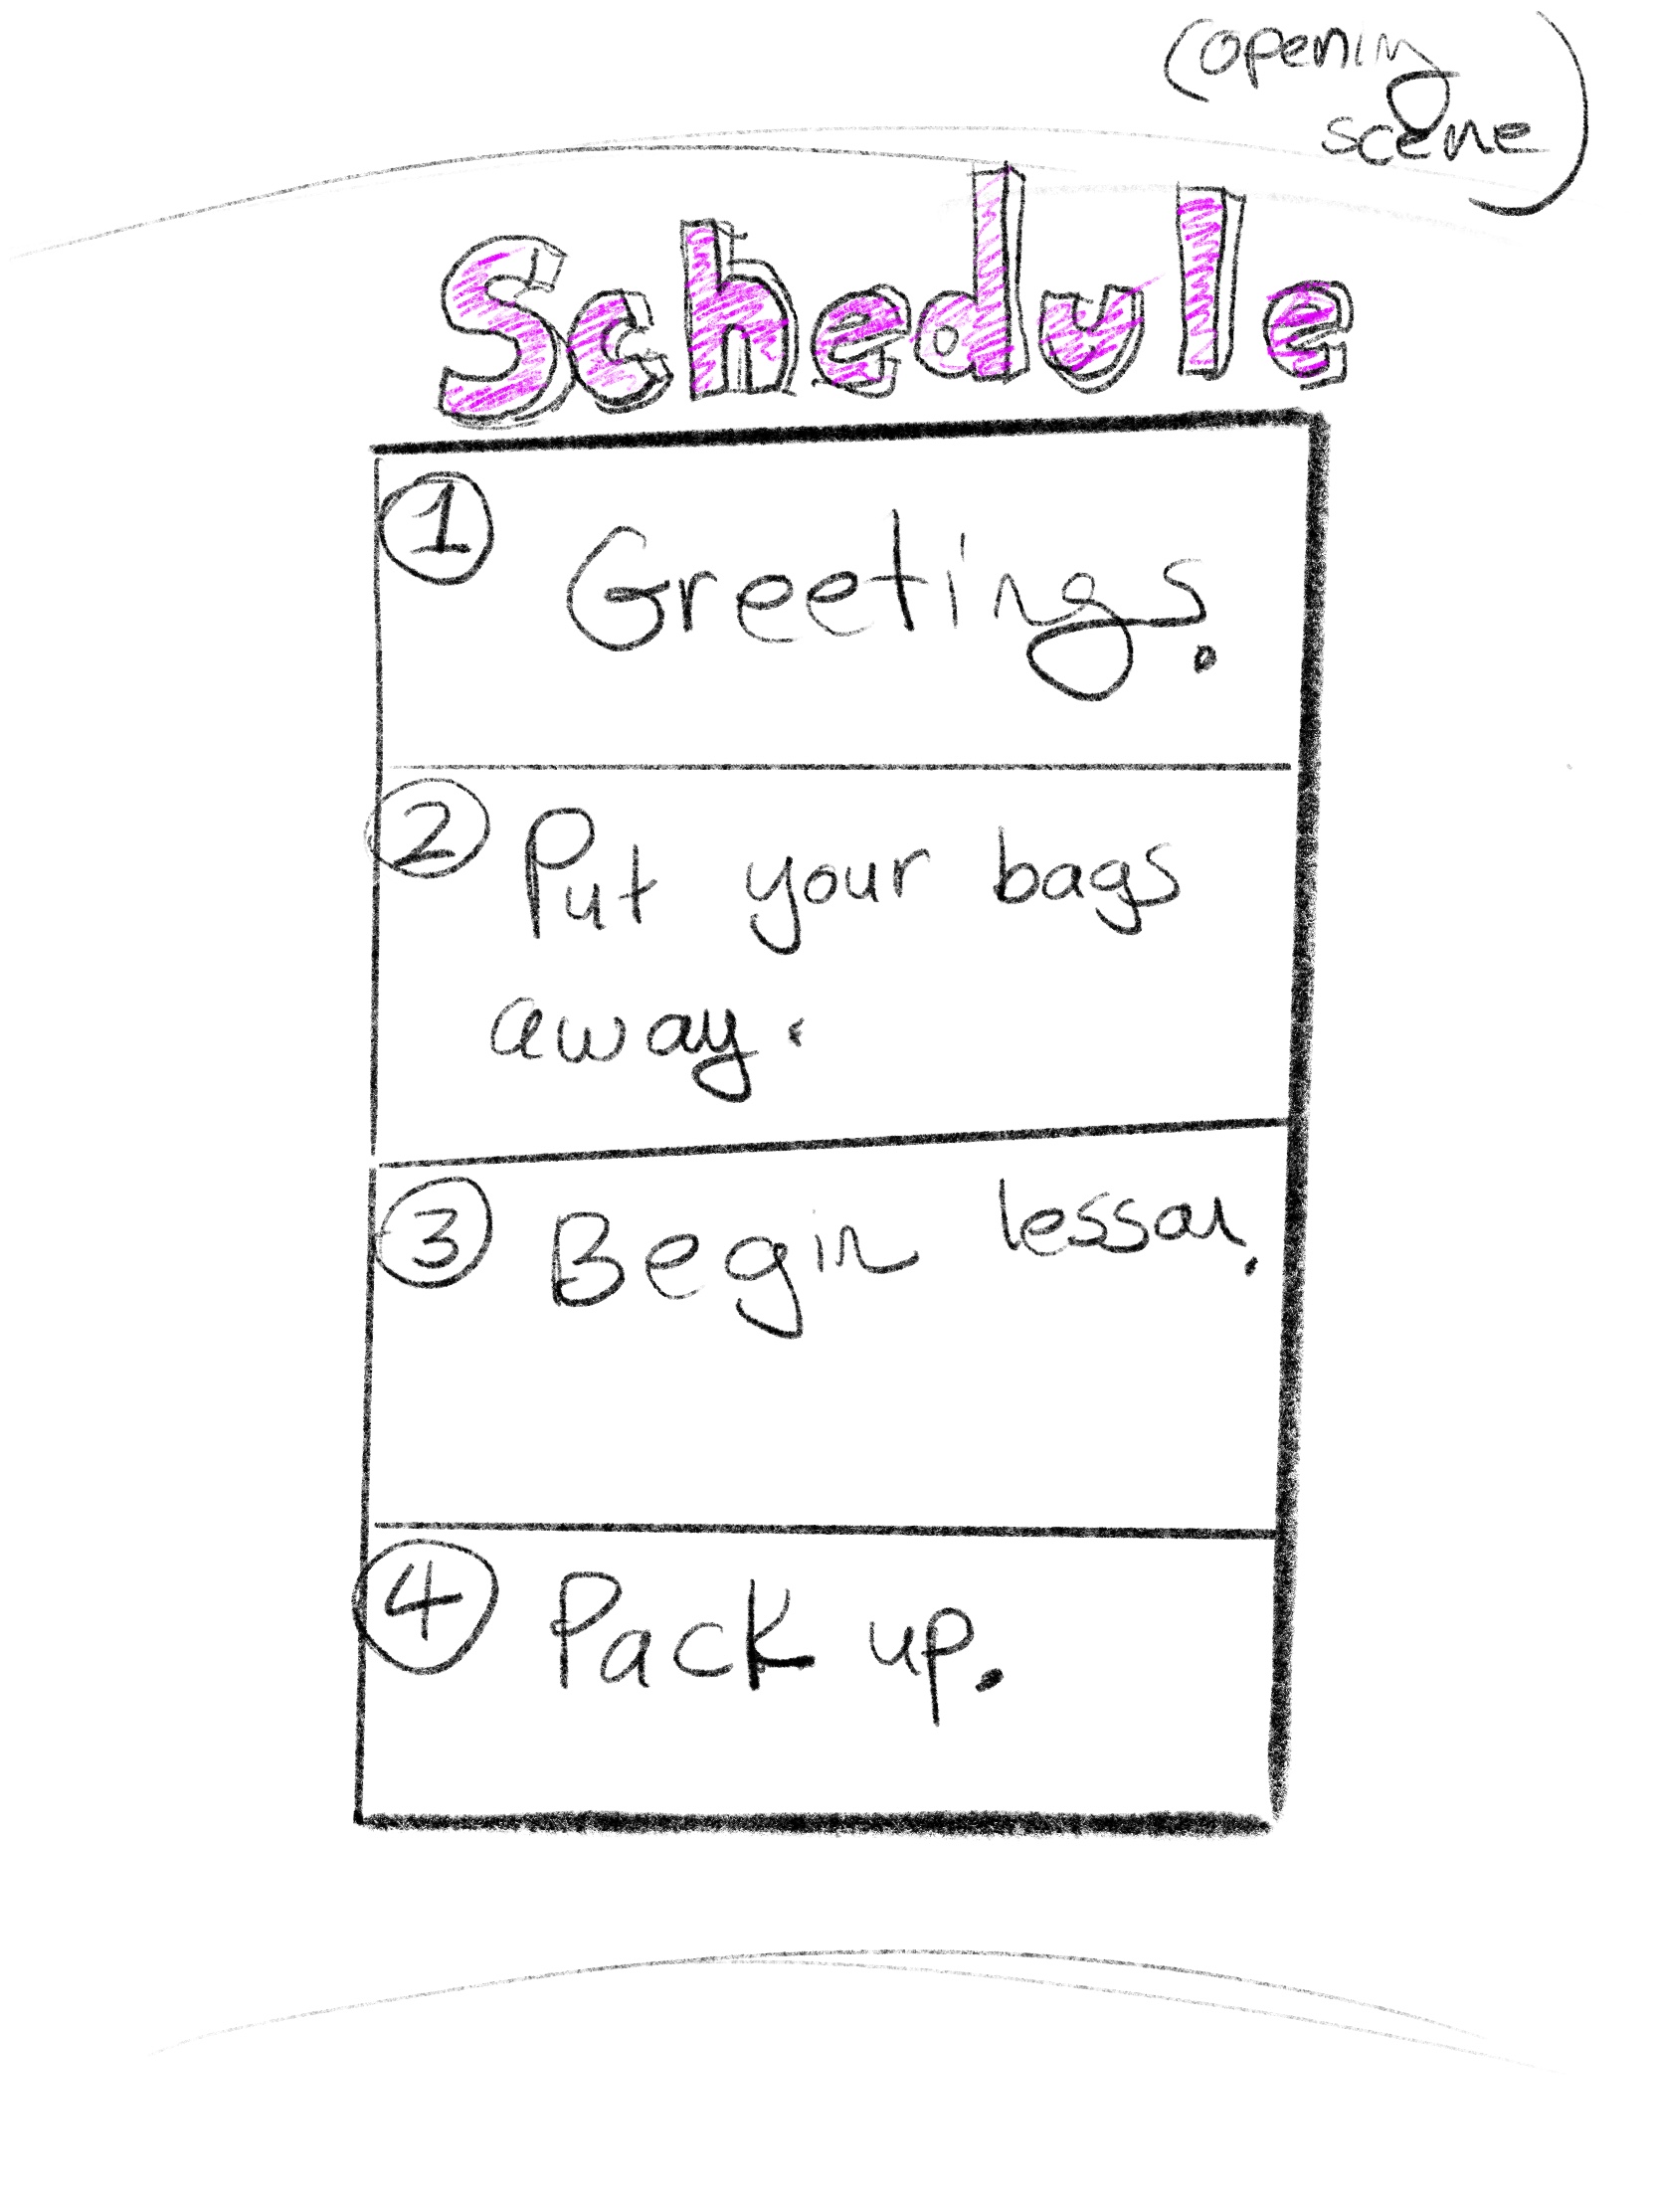 (opening
scene)
Schedule
1 Greetings.
2 Put your bags
away.
3 Begin lesson.
4 Pack up.